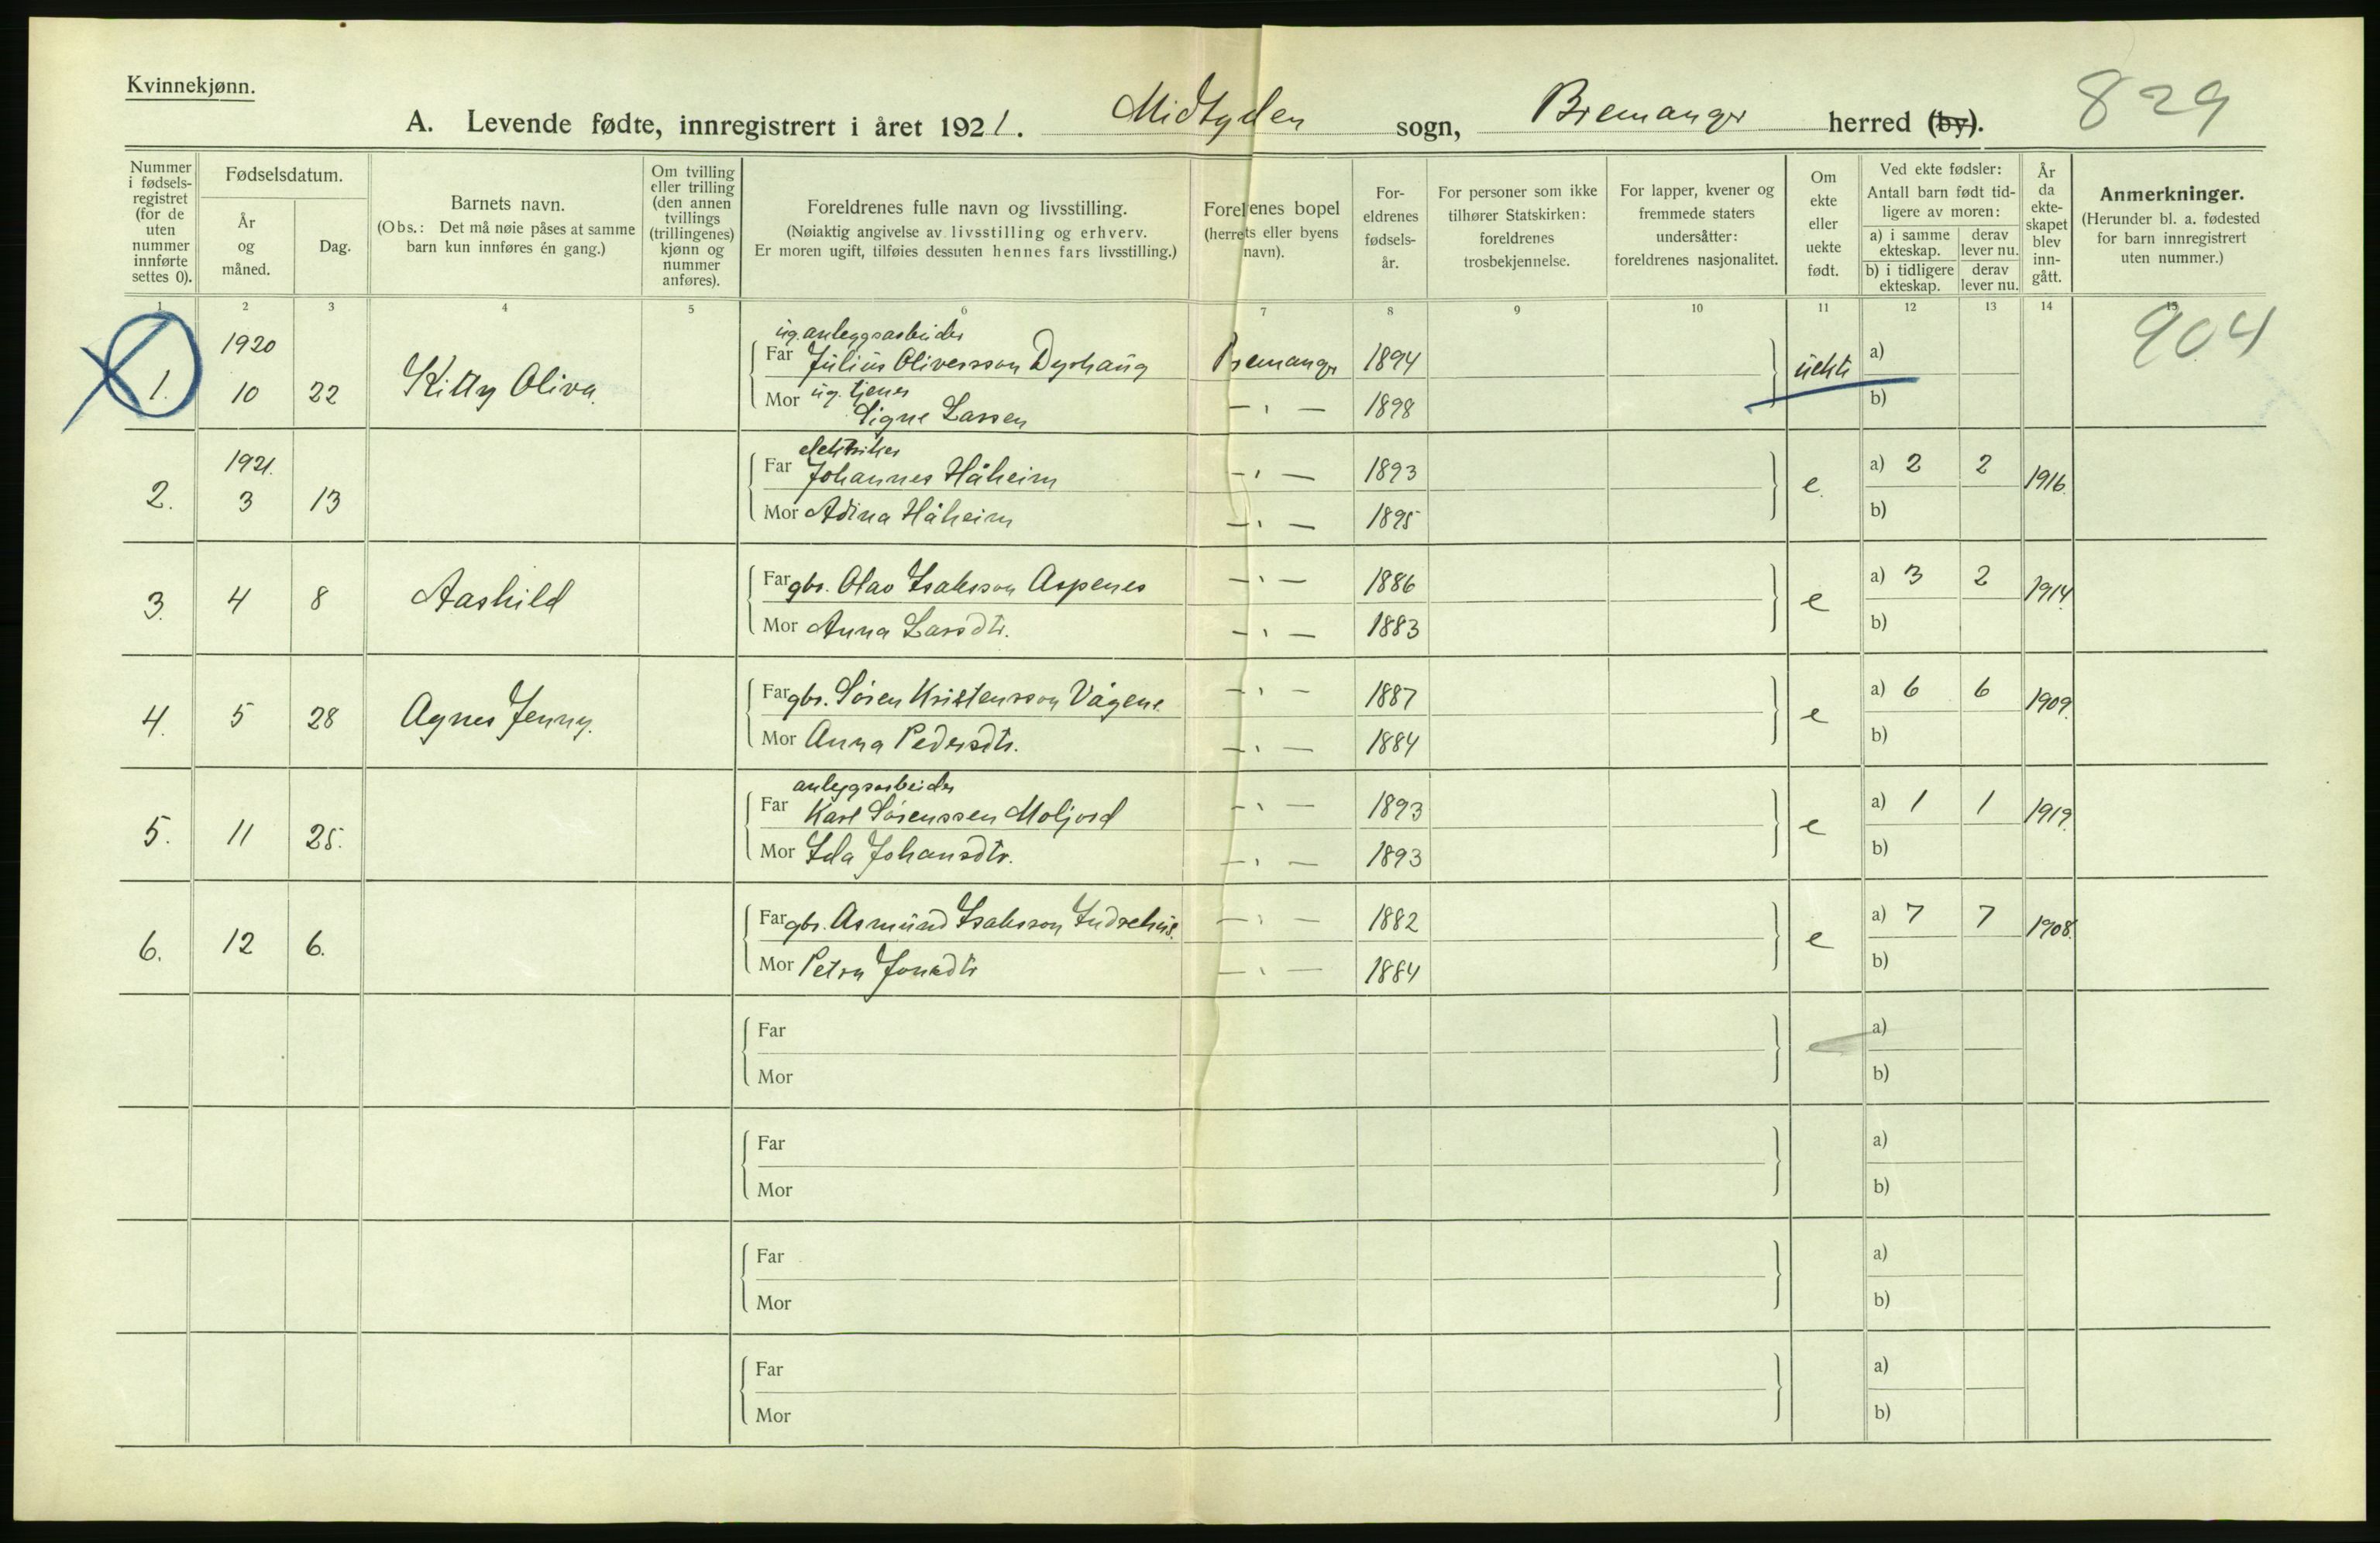 Kvinnekjønn.
829
A. Levende fødte, innregistrert i året 1921. Midtgulen sogn, Bremanger herred (by).
Nummer i fødselsregistret (for de uten nummer innførte settes 0).
Fødselsdatum.
År og måned.
Dag.
Barnets navn.
(Obs.: Det må nøie påses at samme barn kun innføres én gang.)
Om tvilling eller trilling (den annen tvillings (trillingenes) kjønn og nummer anføres).
Foreldrenes fulle navn og livsstilling.
(Nøiaktig angivelse av livsstilling og erhverv.
Er moren ugift, tilføies dessuten hennes fars livsstilling.)
Forel enes bopel (herrets eller byens navn).
Foreldrenes fødselsår.
For personer som ikke tilhører Statskirken: foreldrenes trosbekjennelse.
For lapper, kvener og fremmede staters undersåtter: foreldrenes nasjonalitet.
Om ekte eller uekte født.
Ved ekte fødsler:
Antall barn født tidligere av moren:
a) i samme ekteskap. derav lever nu.
b) i tidligere ekteskap. derav lever nu.
År da ekteskapet blev inngått.
Anmerkninger.
(Herunder bl. a. fødested for barn innregistrert uten nummer.)
1 2 3 4 5 6 7 8 9 10 11 12 13 14 15
904
1920
ug. anleggsarbeider
1. 10 22 Kitty Oliva. Far Julius Oliversson Dyrhaug Bremanger 1894 uekte a)
Mor ug. tjener
Signe Lassen – " – 1898 b)
1921.
elektriker
2. 3 13 Far Johannes Håheim – " – 1893 e. a) 2 2 1916.
Mor Adina Håheim – " – 1895 b)
3. 4 8 Aashild Far gbr. Olav Isaksson Aspenes – " – 1886 e a) 3 2 1914.
Mor Anna Larsdtr. – " – 1883 b)
4. 5 28 Agnes Jenny. Far gbr. Søren Kristensson Vågene – " – 1887 e a) 6 6 1909.
Mor Anna Pedersdtr. – " – 1884 b)
anleggsarbeider
5. 11 25. Far Karl Sørenssen Moljord – " – 1893 e a) 1 1 1919.
Mor Ida Johansdtr. – " – 1893 b)
6. 12 6. Far gbr. Asmund Isaksson Indrehus. – " – 1882 e a) 7 7 1908.
Mor Petra Jonsdtr – " – 1884 b)
Far a)
Mor b)
Far a)
Mor b)
Far a)
Mor b)
Far a)
Mor b)